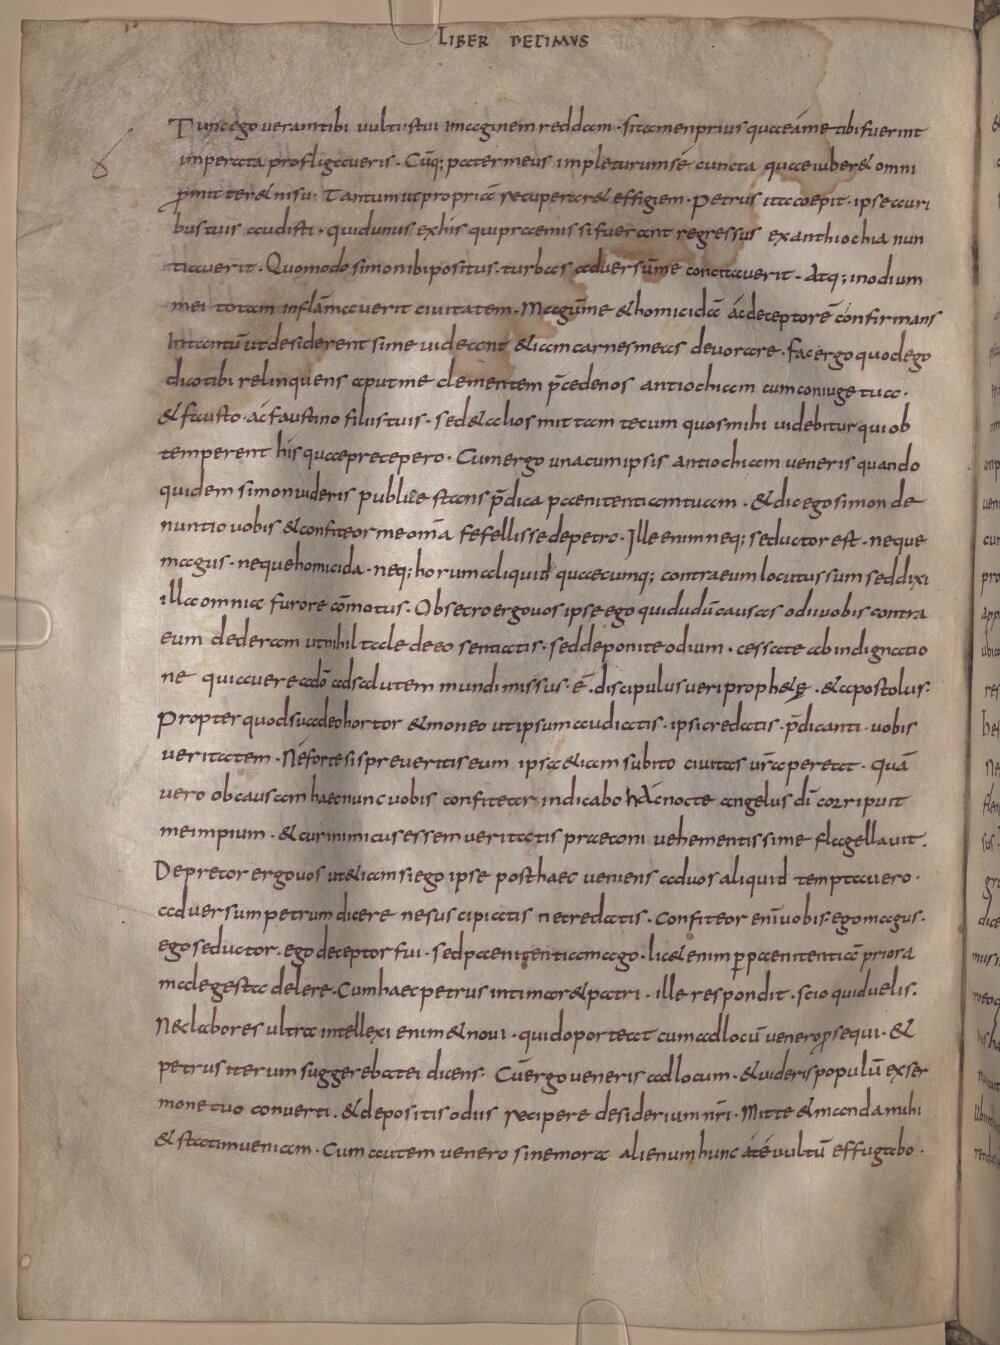 LIBER DECIMUS
Tunc ego veram tibi vultus tui imaginem reddam · si tamen prius quae á me tibi fuerint
imperata profligaveris · Cūq; pater meus impleturum sé cuncta quae iuber& omni
p̄mitter& nisu · Tantum ut propriā recuperar& effigiem · Petrus ita coepit · ipse auri
bus tuis audisti · quid unus ex his qui praemissi fuerant regressus ex anthiochia nun
tiaverit · Quomodo simon ibi positus · turbas adversūme concitaverit · Atq; in odium
mei totam inflāmaverit civitatem · Magūme & homicidā ác deceptorē confirmans
In tantū ut desiderent si me videant &iam carnes meas devorare · fac ergo quod ego
dico tibi relinquens aput me clementem p̄cede nos antiochiam cum coniuge tua ·
& fausto · ác faustino filiis tuis · sed & alios mittam tecum quos mihi videbitur qui ob
temperent his quae precepero · Cum ergo una cum ipsis antiochiam veneris quando
quidem simon videris publice stans p̄dica paenitentiam tuam · & dic ego simon de
nuntio vobis & confiteor me omā fefellisse de petro · Ille enim neq; seductor est · neque
magus · neque homicida · neq; horum aliquid quaecumq; contra eum locutus sum sed dixi
illa omnia furore cōmotus · Obsecro ergo vos ipse ego qui dudū causas odii vobis contra
eum dederam ut nihil tale de eo sentiatis · sed deponite odium · cessate ab indignatio
ne quia vere a dō ad salutem mundi missus · ē · discipulus veri proph&ę · & apostolus ·
Propter quod suadeo hortor & moneo ut ipsum audiatis · ipsi credatis · p̄dicanti · vobis
veritatem · Né forte si spreveritis eum ipsa &iam subito civitas vr̄a pereat · Quā
vero ob causam haec nunc vobis confitear indicabo hác nocte angelus dī corripuit
me impium · & cur inimicus essem veritatis praeconi vehementissime flagellavit ·
Depretor ergo vos ut &iam si ego ipse posthaec veniens ad vos aliquid temptavero ·
adversum petrum dicere ne suscipiatis ne credatis · Confiteor enī vobis · ego magus ·
ego seductor · ego deceptor fui · sed paenitentiam ago · lic& enim p̱ paenitentiā priora
male gesta delere · Cum haec petrus intimar& patri · ille respondit · scio quid velis ·
Nec labores ultra intellexi enim & novi · quid oporteat cum ad locū venero p̱sequi · &
petrus iterum suggerebat ei dicens · Cūergo veneris ad locum · & videris populū ex ser
mone tuo converti · & depositis odiis recipere desiderium nr̄i · Mitte & manda mihi
& statim veniam · Cum autem venero sine mora alienum hunc á té vultū effugabo ·